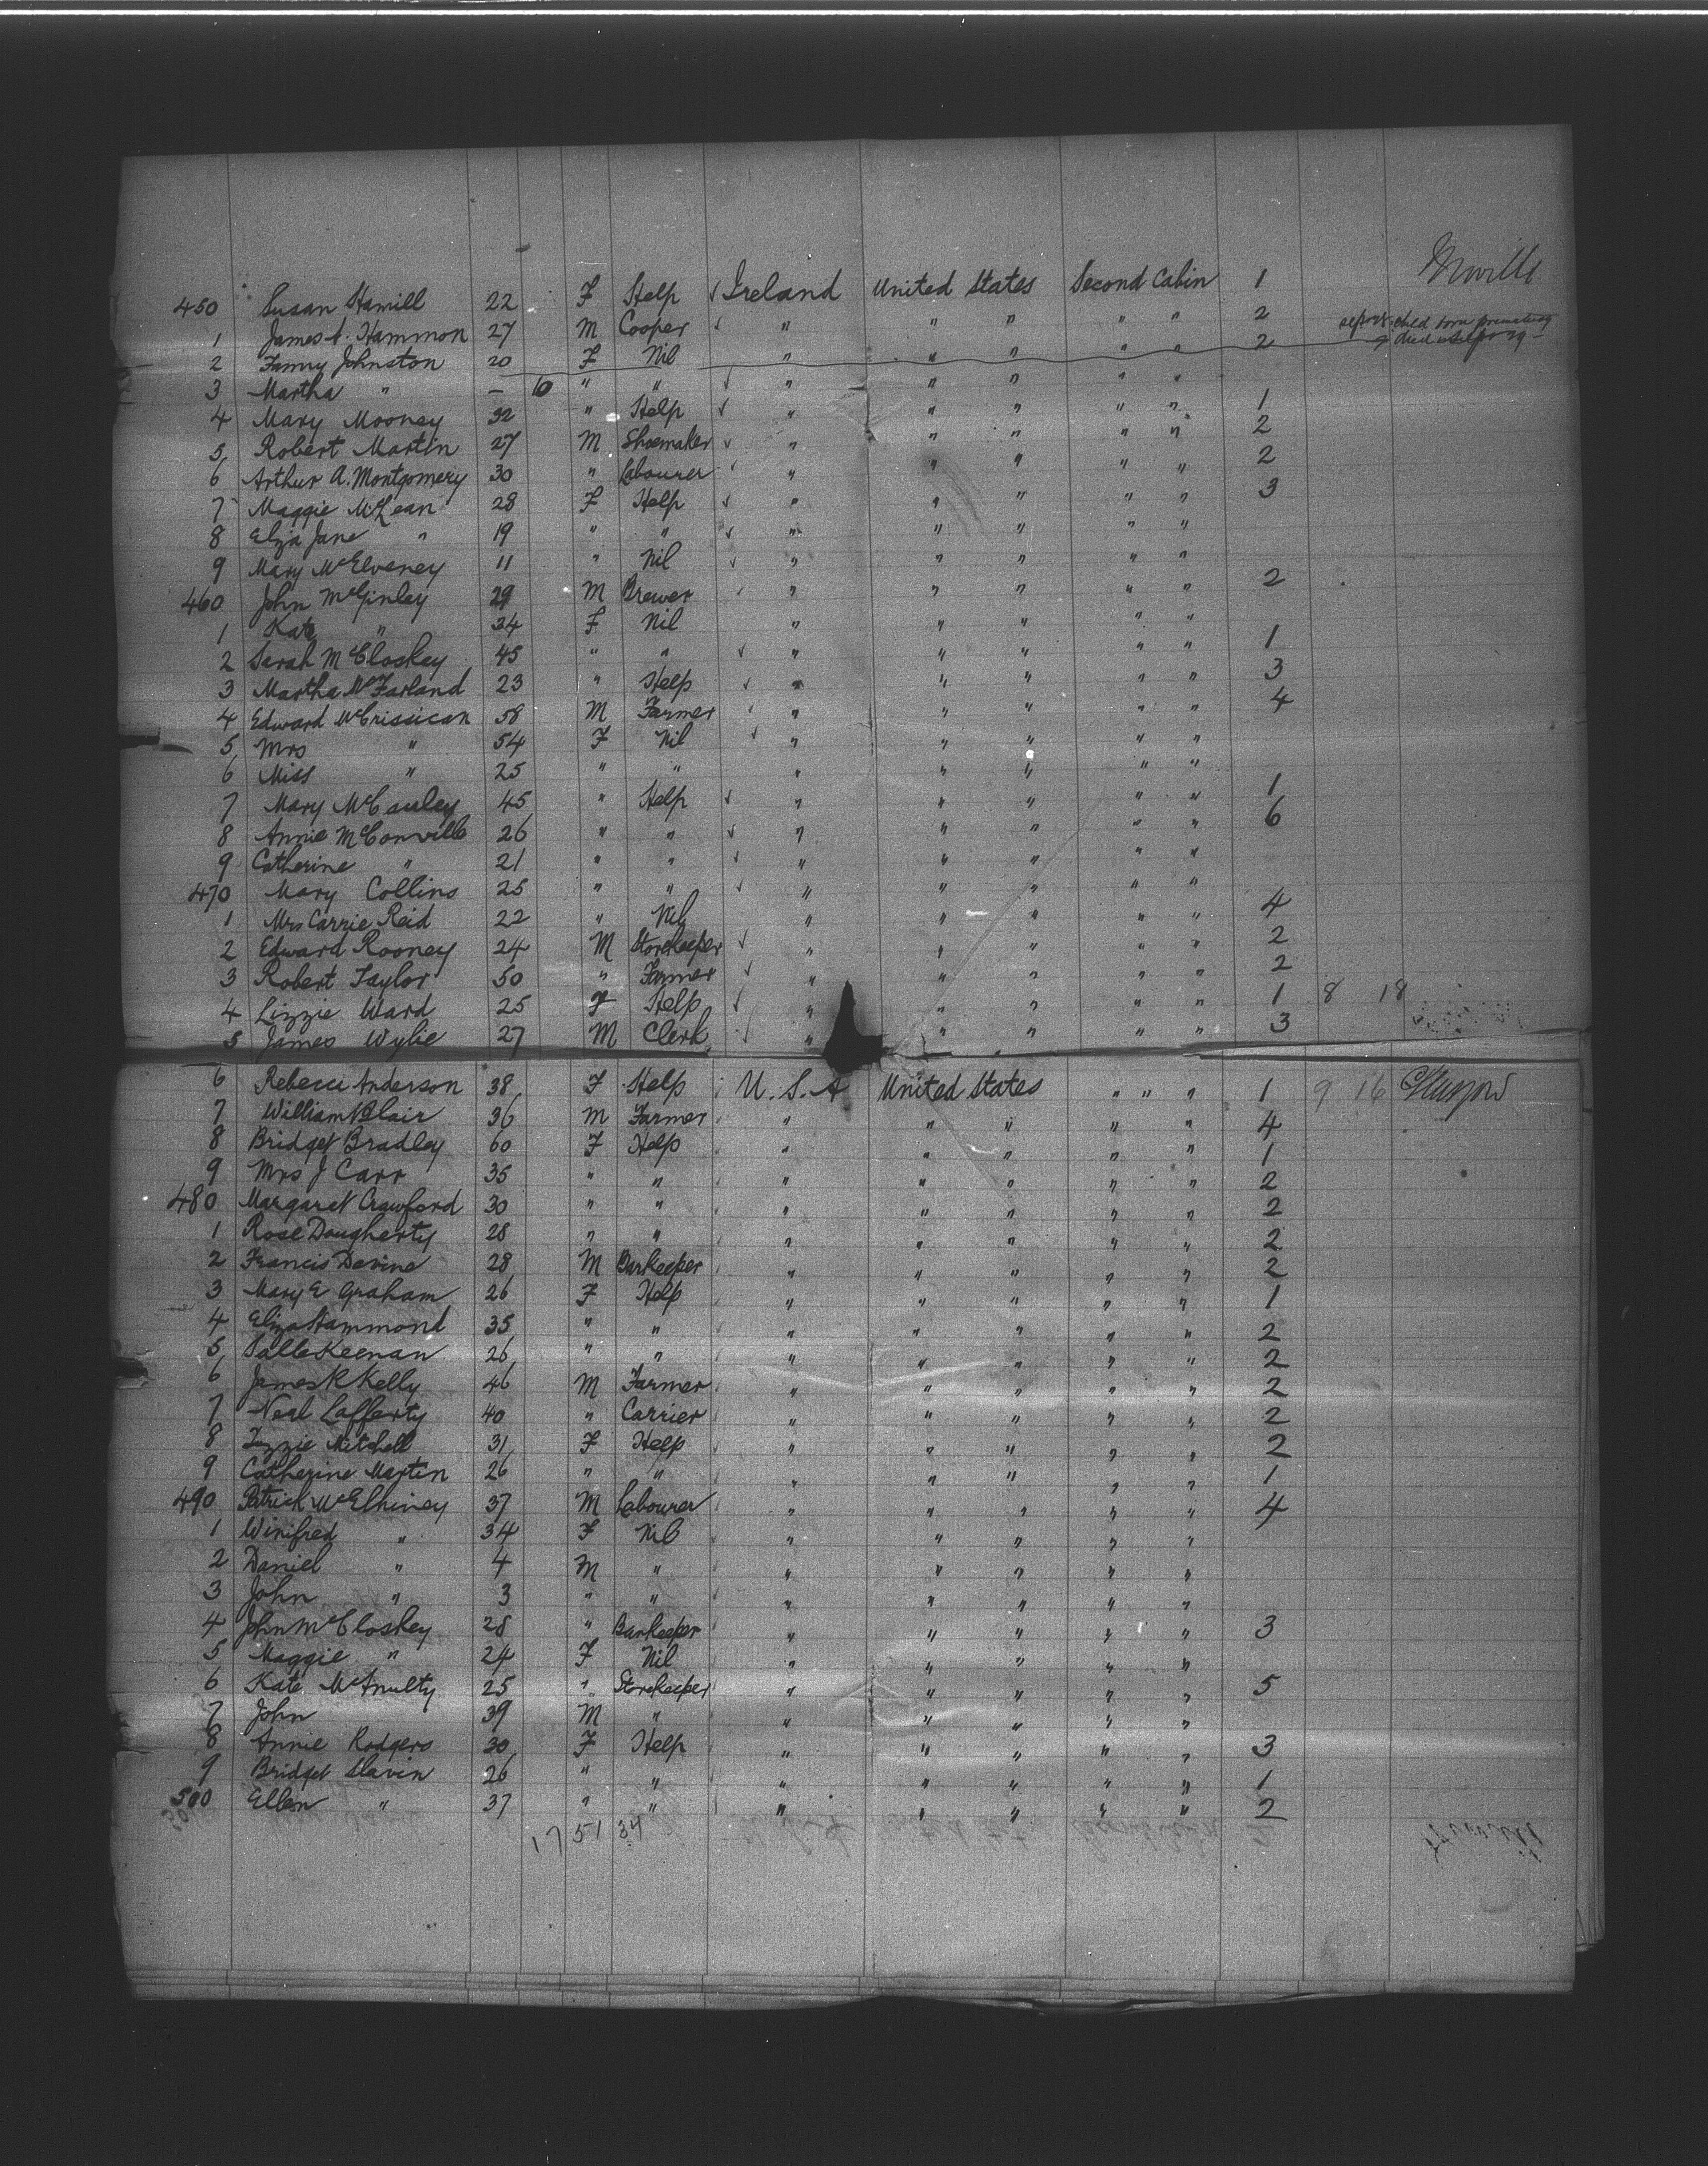 Moville
450 Susan Hamill 22 F Help √ Ireland United States Second Cabin 1
1 James A. Hammon 27 M Cooper √ " " " " " 2
2 Fanny Johnston 20 F Nil " " " " " 2 child born
3 Martha " — 10 " " √ " " " " "
4 Mary Mooney 32 " Help √ " " " " " 1
5 Robert Martin 27 M Shoemaker √ " " " " " 2
6 Arthur A. Montgomery 30 " Labourer √ " " " " " 2
7 Maggie McLean 28 F Help √ " " " " " 3
8 Eliza Jane " 19 " " √ " " " " "
9 Mary McElveney 11 " Nil √ " " " " "
460 John McGinley 29 M Brewer √ " " " " " 2
1 Kate " 34 F Nil " " " " "
2 Sarah McCloskey 45 " " √ " " " " " 1
3 Martha McFarland 23 " Help √ " " " " " 3
4 Edward McCrissican 58 M Farmer √ " " " " " 4
5 Mrs " 54 F Nil √ " " " " "
6 Miss " 25 " " " " " " "
7 Mary McCauley 45 " Help √ " " " " " 1
8 Annie McConville 26 " " √ " " " " " 6
9 Catherine " 21 " " √ " " " " "
470 Mary Collins 25 " " √ " " " " "
1 Mrs Carrie Reid 22 " Nil " " " " " 4
2 Edward Rooney 24 M Storekeeper √ " " " " " 2
3 Robert Taylor 50 " Farmer √ " " " " " 2
4 Lizzie Ward 25 F Help √ " " " " " 1 8 18
5 James Wylie 27 M Clerk √ " " " " " 3
6 Rebecca Anderson 38 F Help U.S.A United States " " " 1 9 16 Glasgow
7 William Blair 36 M Farmer " " " " " 4
8 Bridget Bradley 60 F Help " " " " " 1
9 Mrs J Carr 35 " " " " " " " 2
480 Margaret Crawford 30 " " " " " " " 2
1 Rose Daugherty 28 " " " " " " " 2
2 Francis Devine 28 M Barkeeper " " " " " 2
3 Mary E Graham 26 F Help " " " " " 1
4 Eliza Hammond 35 " " " " " " " 2
5 Keenan 26 " " " " " " " 2
6 James R Kelly 46 M Farmer " " " " " 2
7 Neal Lafferty 40 " Carrier " " " " " 2
8 Lizzie Mitchell 31 F Help " " " " " 2
9 Catherine Martin 26 " " " " " " " 1
490 Patrick McElhiney 37 M Labourer " " " " " 4
1 Winifred " 34 F Nil " " " " "
2 Daniel " 4 M " " " " " "
3 John " 3 " " " " " " "
4 John McCloskey 28 " Barkeeper " " " " " 3
5 Maggie " 24 F Nil " " " " "
6 Kate McAnulty 25 " Storekeeper " " " " " 5
7 John 39 M " " " " " "
8 Annie Rodgers 30 F Help " " " " " 3
9 Bridget Slavin 26 " " " " " " " 1
500 Ellen " 37 " " " " " " " 2
17 51 34